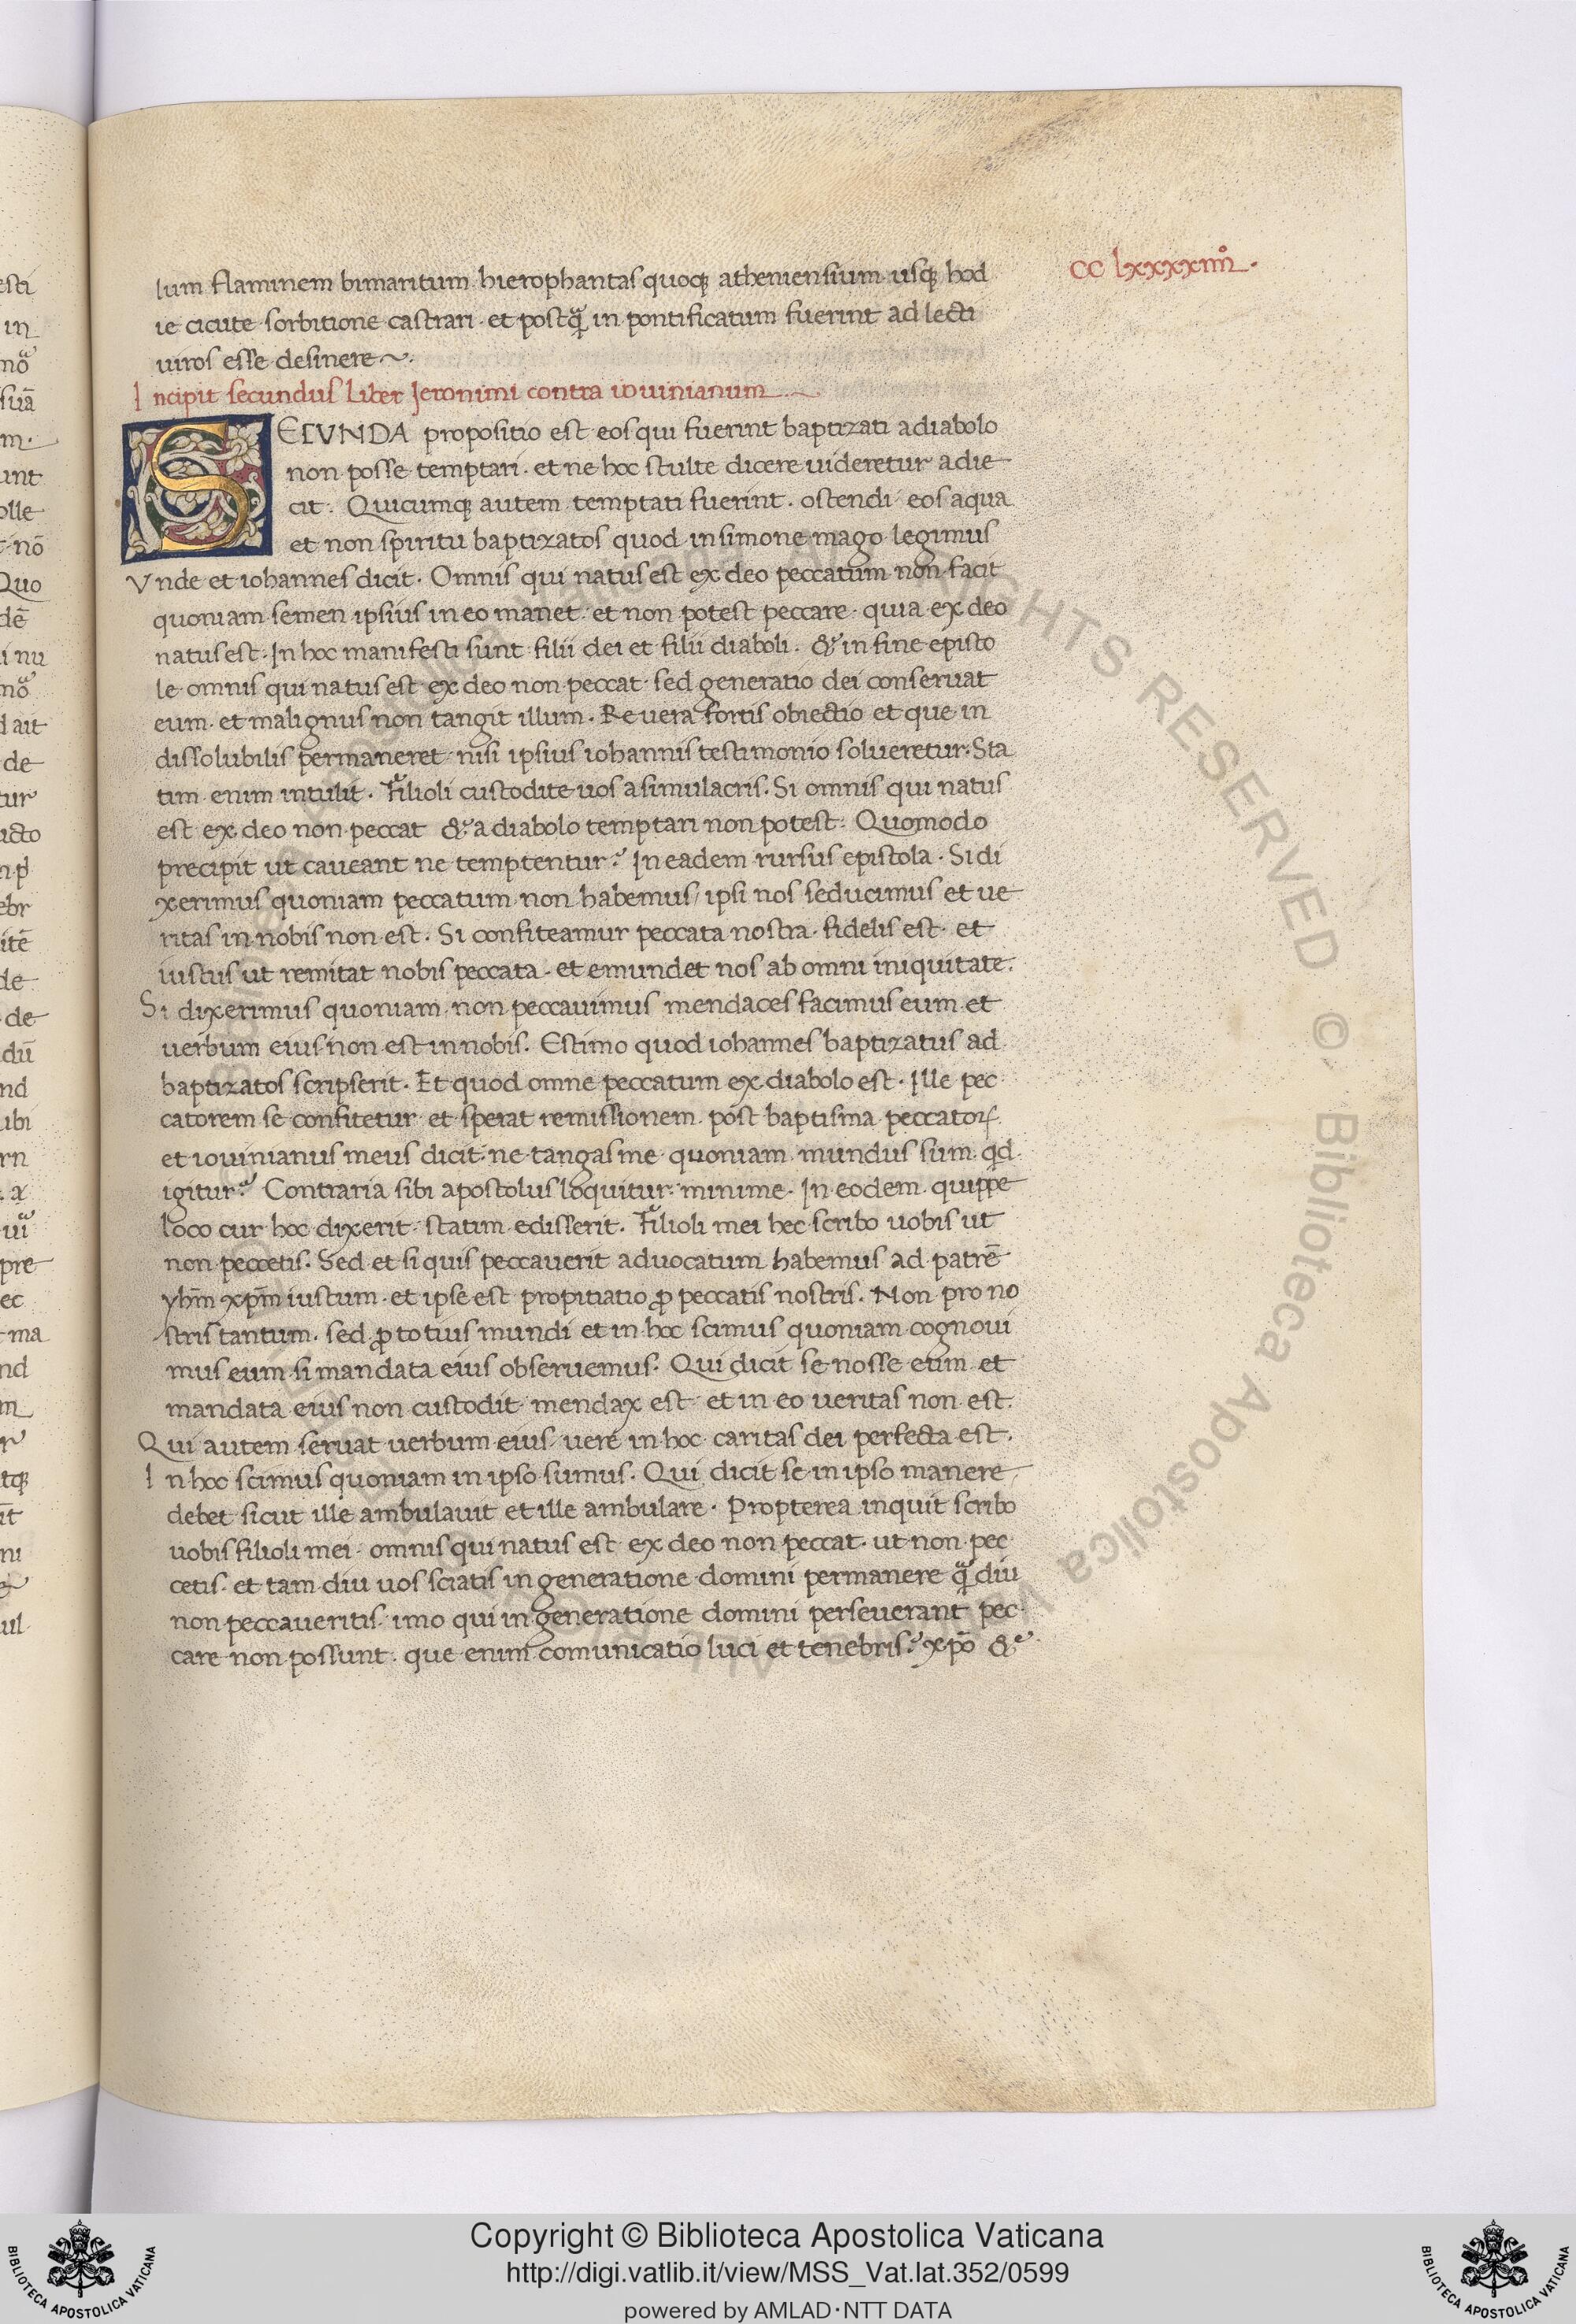 CC lxxxxiiii°.
lum flaminem bimaritum hierophantas quoqꝫ atheniensium usqꝫ hod
ie cicute sorbitione castrari · et postꝙ̃ in pontificatum fuerint ad lecti
uiros esse desinere ~.
Incipit secundus Liber Jeronimi contra iouinianum
SECVNDA propositio est eos qui fuerint baptizati a diabolo
non posse temptari · et ne hoc stulte dicere uideretur adie
cit · Quicumqꝫ autem temptati fuerint · ostendi eos aqua
et non spiritu baptizatos quod in simone mago legimus
Vnde et iohannes dicit · Omnis qui natus est ex deo peccatum non facit
quoniam semen ipsius in eo manet · et non potest peccare · quia ex deo
natus est · In hoc manifesti sunt filii dei et filii diaboli · & in fine episto
le omnis qui natus est ex deo non peccat · sed generatio dei conseruat
eum · et malignus non tangit illum · Re uera fortis obiectio et que in
dissolubilis permaneret nisi ipsius iohannis testimonio solueretur · Sta
tim enim intulit · Filioli custodite uos a simulacris · Si omnis qui natus
est ex deo non peccat & a diabolo temptari non potest · Quomodo
precipit ut caueant ne temptentur? In eadem rursus epistola · Si di
xerimus quoniam peccatum non habemus / ipsi nos seducimus et ue
ritas in nobis non est · Si confiteamur peccata nostra · fidelis est · et
iustus ut remitat nobis peccata · et emundet nos ab omni iniquitate ·
Si dixerimus quoniam non peccauimus mendaces facimus eum et
uerbum eius non est in nobis · Estimo quod iohannes baptizatus ad
baptizatos scripserit · Et quod omne peccatum ex diabolo est · Ille pec
catorem se confitetur et sperat remissionem post baptisma peccatoꝝ
et iouinianus meus dicit · ne tangas me quoniam mundus sum · qd
igitur? Contraria sibi apostolus loquitur · minime · In eodem quippe
loco cur hoc dixerit · statim edisserit · Filioli mei hec scribo uobis ut
non peccetis · Sed et si quis peccauerit aduocatum habemus ad patrē
yhm̄ xpm̄ iustum · et ipse est propitiatio ꝓ peccatis nostris · Non pro no
stris tantum · sed ꝓ totius mundi et in hoc scimus quoniam cognoui
mus eum si mandata eius obseruemus · Qui dicit se nosse eum et
mandata eius non custodit mendax est et in eo ueritas non est ·
Qui autem seruat uerbum eius / uere in hoc caritas dei perfecta est ·
In hoc scimus quoniam in ipso sumus · Qui dicit se in ipso manere
debet sicut ille ambulauit et ille ambulare · Propterea inquit scribo
uobis filioli mei · omnis qui natus est ex deo non peccat · ut non pec
cetis · et tam diu uos sciatis in generatione domini permanere ꝙ̃ diu
non peccaueritis · imo qui in generatione domini perseuerant pec
care non possunt · que enim comunicatio luci et tenebris? xpō &
Copyright © Biblioteca Apostolica Vaticana
http://digi.vatlib.it/view/MSS_Vat.lat.352/0599
powered by AMLAD·NTT DATA
BIBLIOTECA APOSTOLICA VATICANA
BIBLIOTECA APOSTOLICA VATICANA